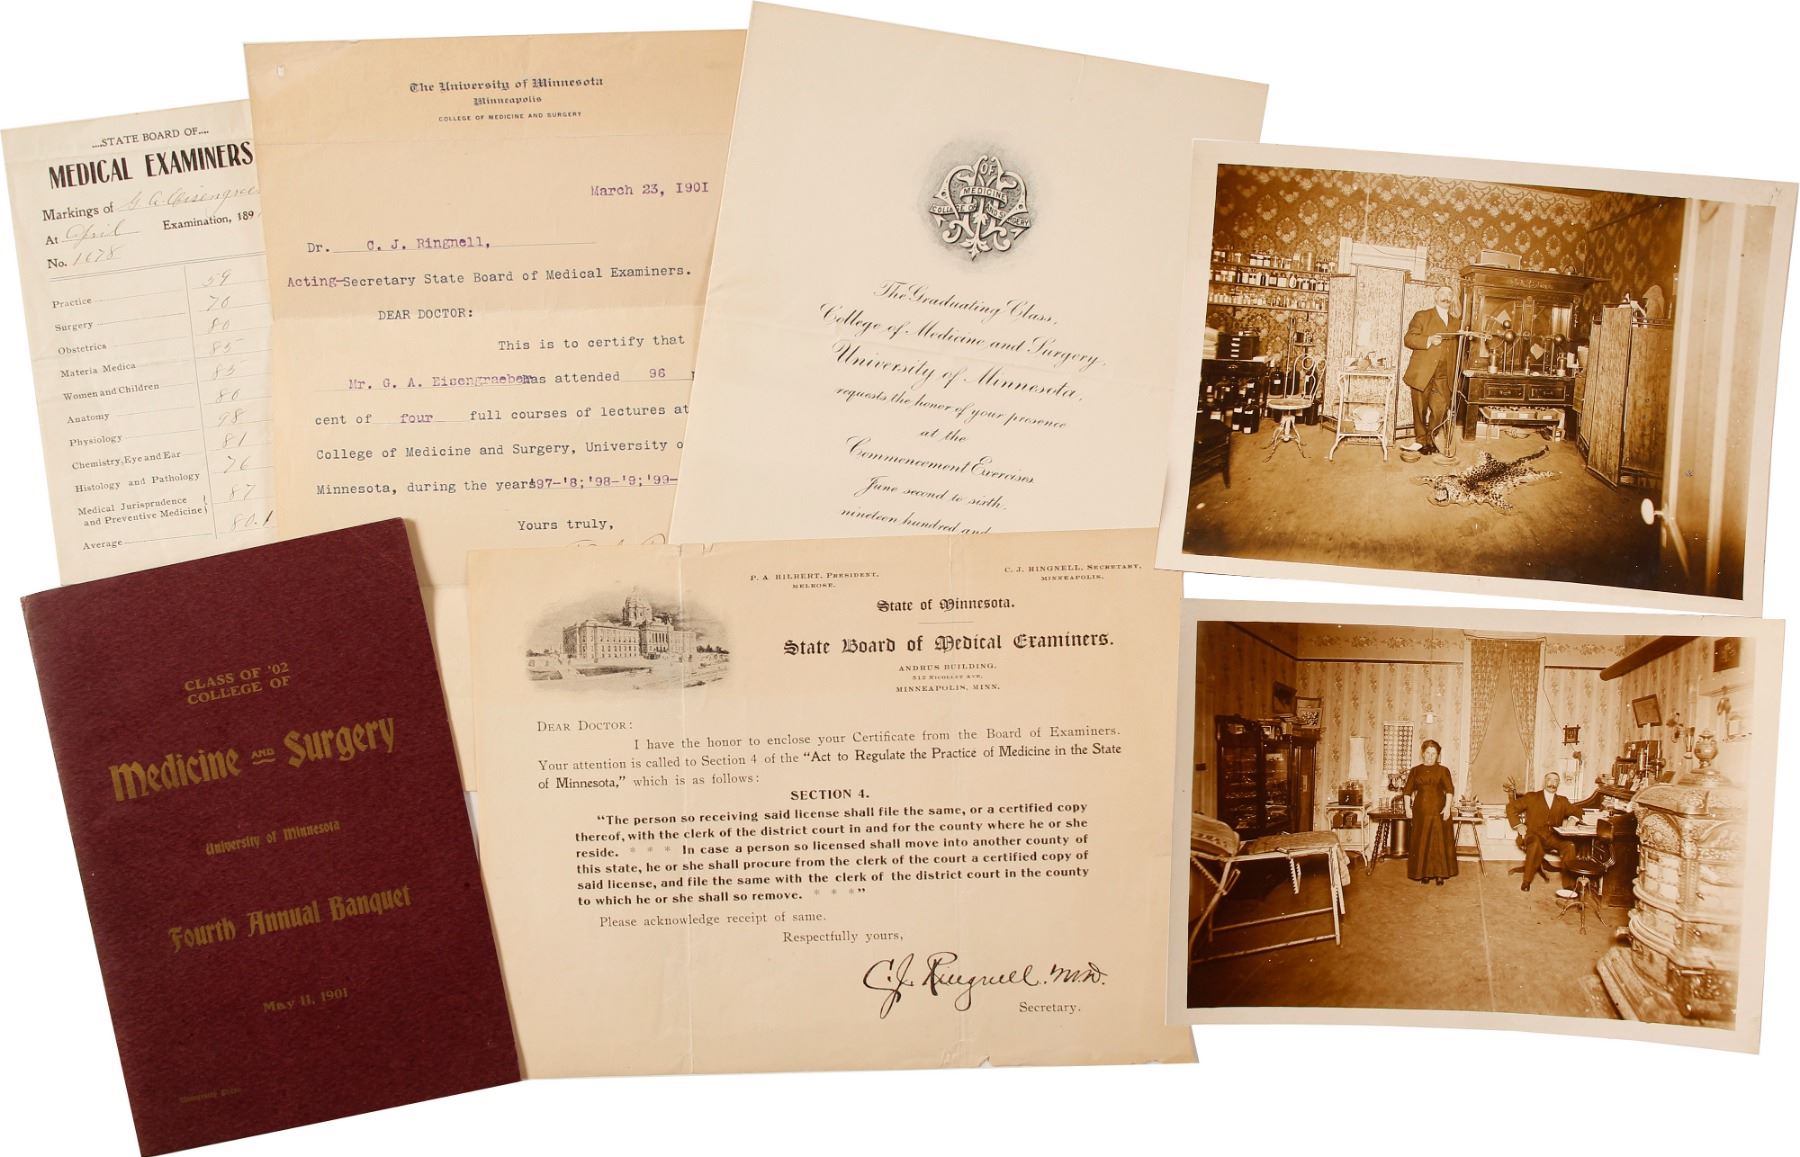 ....STATE BOARD OF....
MEDICAL EXAMINERS
Markings of G. A. Eisengrae
At April Examination, 189
No. 1678
Practice 59
Surgery 70
Obstetrics 80
Materia Medica 85
Women and Children 83
Anatomy 80
Physiology 98
Chemistry, Eye and Ear 81
Histology and Pathology 76
Medical Jurisprudence
and Preventive Medicine 87
Average 80.1
The University of Minnesota
Minneapolis
COLLEGE OF MEDICINE AND SURGERY
March 23, 1901
Dr. C. J. Ringnell,
Acting-Secretary State Board of Medical Examiners.
DEAR DOCTOR:
This is to certify that
Mr. G. A. Eisengraeber has attended 96
cent of four full courses of lectures at
College of Medicine and Surgery, University o
Minnesota, during the years '97-'8;'98-'9;'99-
Yours truly,
OF
MEDICINE
COLLEGE OF AND SURGERY
The Graduating Class,
College of Medicine and Surgery,
University of Minnesota,
requests the honor of your presence
at the
Commencement Exercises
June second to sixth,
nineteen hundred and
CLASS OF '02
COLLEGE OF
Medicine AND Surgery
University of Minnesota
Fourth Annual Banquet
May 11, 1901
University Press
P. A. HILBERT, PRESIDENT,
MELROSE.
C. J. RINGNELL, SECRETARY,
MINNEAPOLIS.
State of Minnesota.
State Board of Medical Examiners.
ANDRUS BUILDING,
512 NICOLLET AVE,
MINNEAPOLIS, MINN.
DEAR DOCTOR:
I have the honor to enclose your Certificate from the Board of Examiners.
Your attention is called to Section 4 of the "Act to Regulate the Practice of Medicine in the State
of Minnesota," which is as follows:
SECTION 4.
"The person so receiving said license shall file the same, or a certified copy
thereof, with the clerk of the district court in and for the county where he or she
reside. * * * In case a person so licensed shall move into another county of
this state, he or she shall procure from the clerk of the court a certified copy of
said license, and file the same with the clerk of the district court in the county
to which he or she shall so remove. * * *"
Please acknowledge receipt of same.
Respectfully yours,
C. J. Ringnell. M.D.
Secretary.